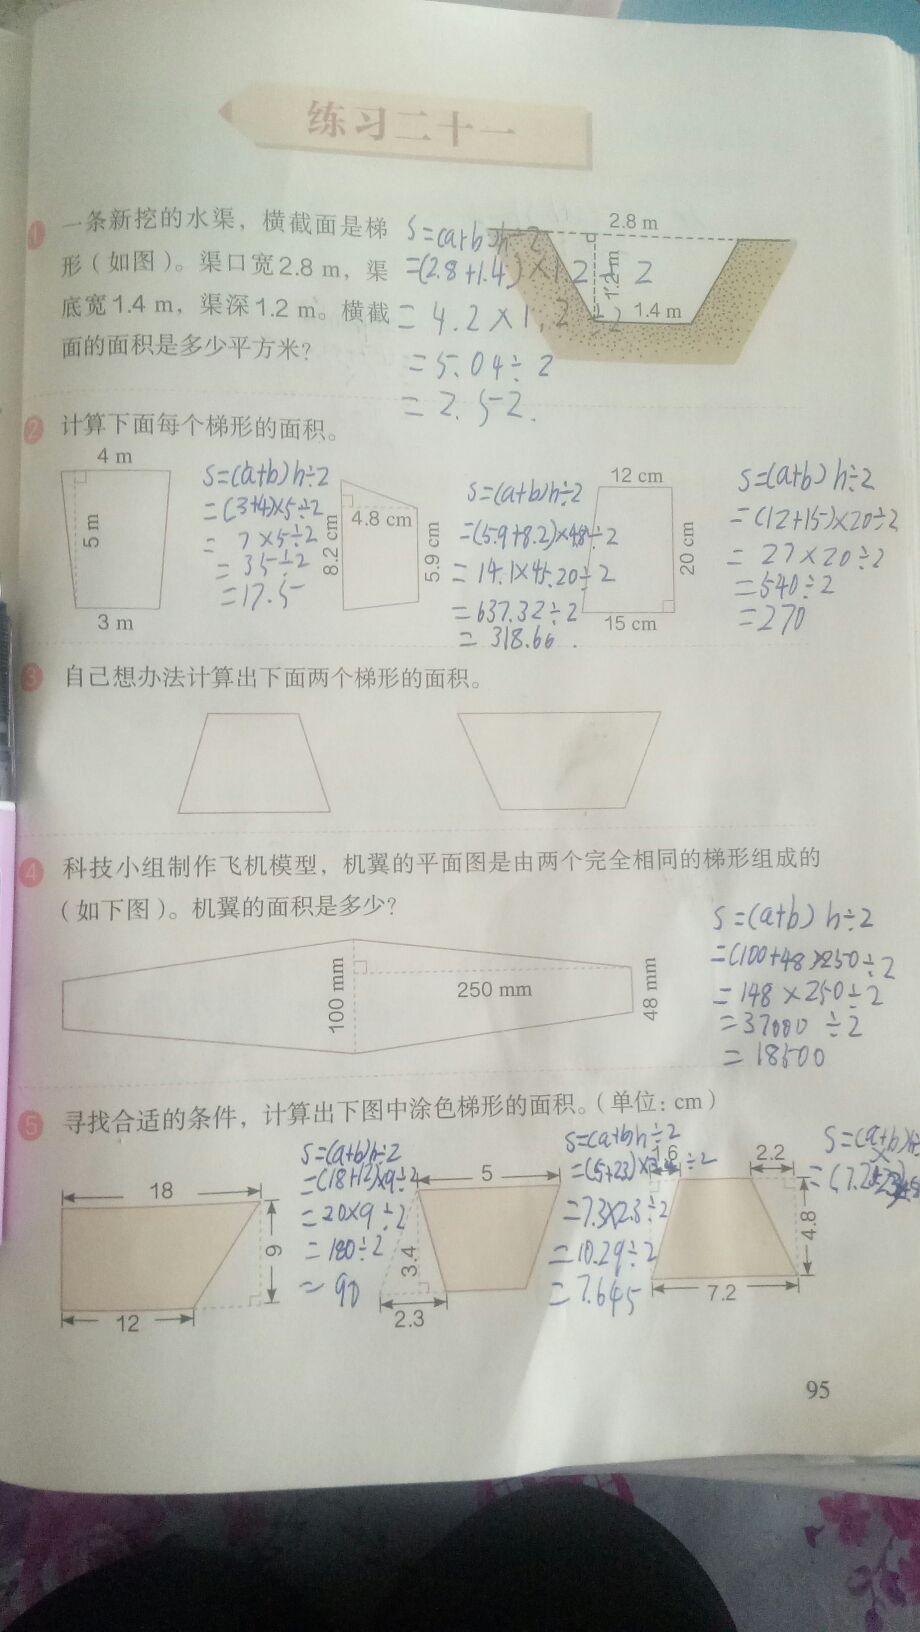 练习二十一
1 一条新挖的水渠，横截面是梯
形（如图）。渠口宽2.8 m，渠
底宽1.4 m，渠深1.2 m。横截
面的面积是多少平方米？
S=(a+b)h÷2
=(2.8+1.4)×1.2÷2
=4.2×1.2÷2
=5.04÷2
=2.52.
2.8 m
1.2 m
1.4 m
2 计算下面每个梯形的面积。
4 m
5 m
3 m
S=(a+b)h÷2
=(3+4)×5÷2
= 7×5÷2
= 35÷2
=17.5
8.2 cm
4.8 cm
5.9 cm
S=(a+b)h÷2
=(5.9+8.2)×48÷2
=14.1×45.20÷2
=637.32÷2
= 318.66.
12 cm
20 cm
15 cm
S=(a+b)h÷2
=(12+15)×20÷2
= 27×20÷2
=540÷2
=270
3 自己想办法计算出下面两个梯形的面积。
4 科技小组制作飞机模型，机翼的平面图是由两个完全相同的梯形组成的
（如下图）。机翼的面积是多少？
100 mm
250 mm
48 mm
S=(a+b)h÷2
=(100+48)×250÷2
=148×250÷2
=37000÷2
= 18500
5 寻找合适的条件，计算出下图中涂色梯形的面积。（单位：cm）
18
9
12
S=(a+b)h÷2
=(18+12)×9÷2
=20×9÷2
=180÷2
= 90
5
3.4
2.3
S=(a+b)h÷2
=(5+23)×3.4÷2
=7.3×2.3÷2
=10.29÷2
=7.645
1.6
2.2
4.8
7.2
S=(a+b)h÷
=(7.2
95